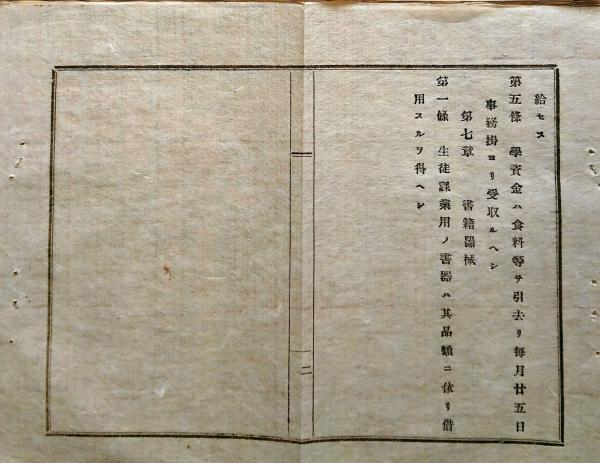 給セス
第五條 學資金ハ食料等ヲ引去リ毎月廿五日
事務掛ヨリ受取ルヘシ
第七章 書籍器械
第一條 生徒課業用ノ書器ハ其品類ニ依リ借
用スルヲ得ヘシ
二